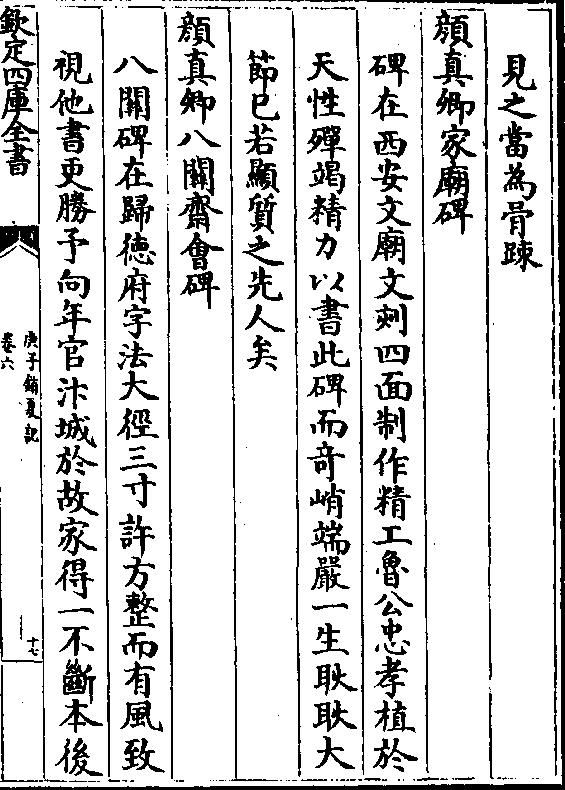 見之當為骨踈
顔真卿家廟碑
碑在西安文廟文刻四面制作精工魯公忠孝植於
天性殫竭精力以書此碑而竒峭端嚴一生耿耿大
節已若顯質之先人矣
顔真卿八關齋會碑
八關碑在歸德府字法大徑三寸許方整而有風致
視他書更勝予向年官汴城於故家得一不斷本後
欽定四庫全書
庚子銷夏記
卷六
十七